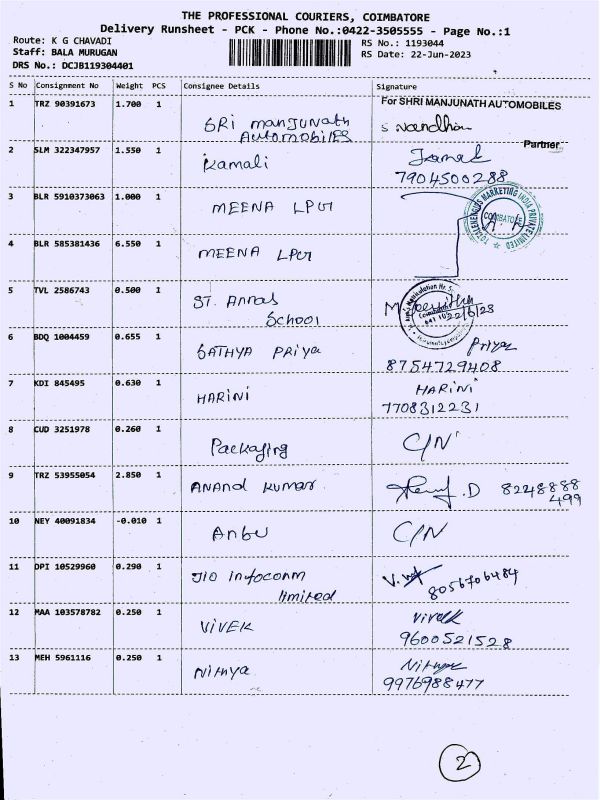 THE PROFESSIONAL COURIERS, COIMBATORE
Delivery Runsheet - PCK - Phone No.:0422-3505555 - Page No.:1
Route: K G CHAVADI
RS No.: 1193044
Staff: BALA MURUGAN
RS Date: 22-Jun-2023
DRS No.: DCJB119304401
S No Consignment No Weight PCS Consignee Details Signature
1 TRZ 90391673 1.700 1 For SHRI MANJUNATH AUTOMOBILES
SRi manjunath
AutomobiLES
Partner
2 SLM 322347957 1.550 1
Kamali
7904500288
3 BLR 5910373063 1.000 1
MEENA LPG
4 BLR 585381436 6.550 1
MEENA LPG
5 TVL 2586743 0.500 1
ST. Annas
School
22/6/23
6 BDQ 1004459 0.655 1
SATHYA PRiya Priya
8754729408
7 KDI 845495 0.630 1
HARiNi HARiNi
7708312231
8 CUD 3251978 0.260 1
Packaging C/N
9 TRZ 53955054 2.850 1
ANAND KUMAR .D 8248888
499
10 NEY 40091834 -0.010 1
Anbu C/N
11 DPI 10529960 0.290 1
JIO infocomm
limited
8056706484
12 MAA 103578782 0.250 1
ViVEK Vivek
9600521528
13 MEH 5961116 0.250 1
Nithya
9976988477
2